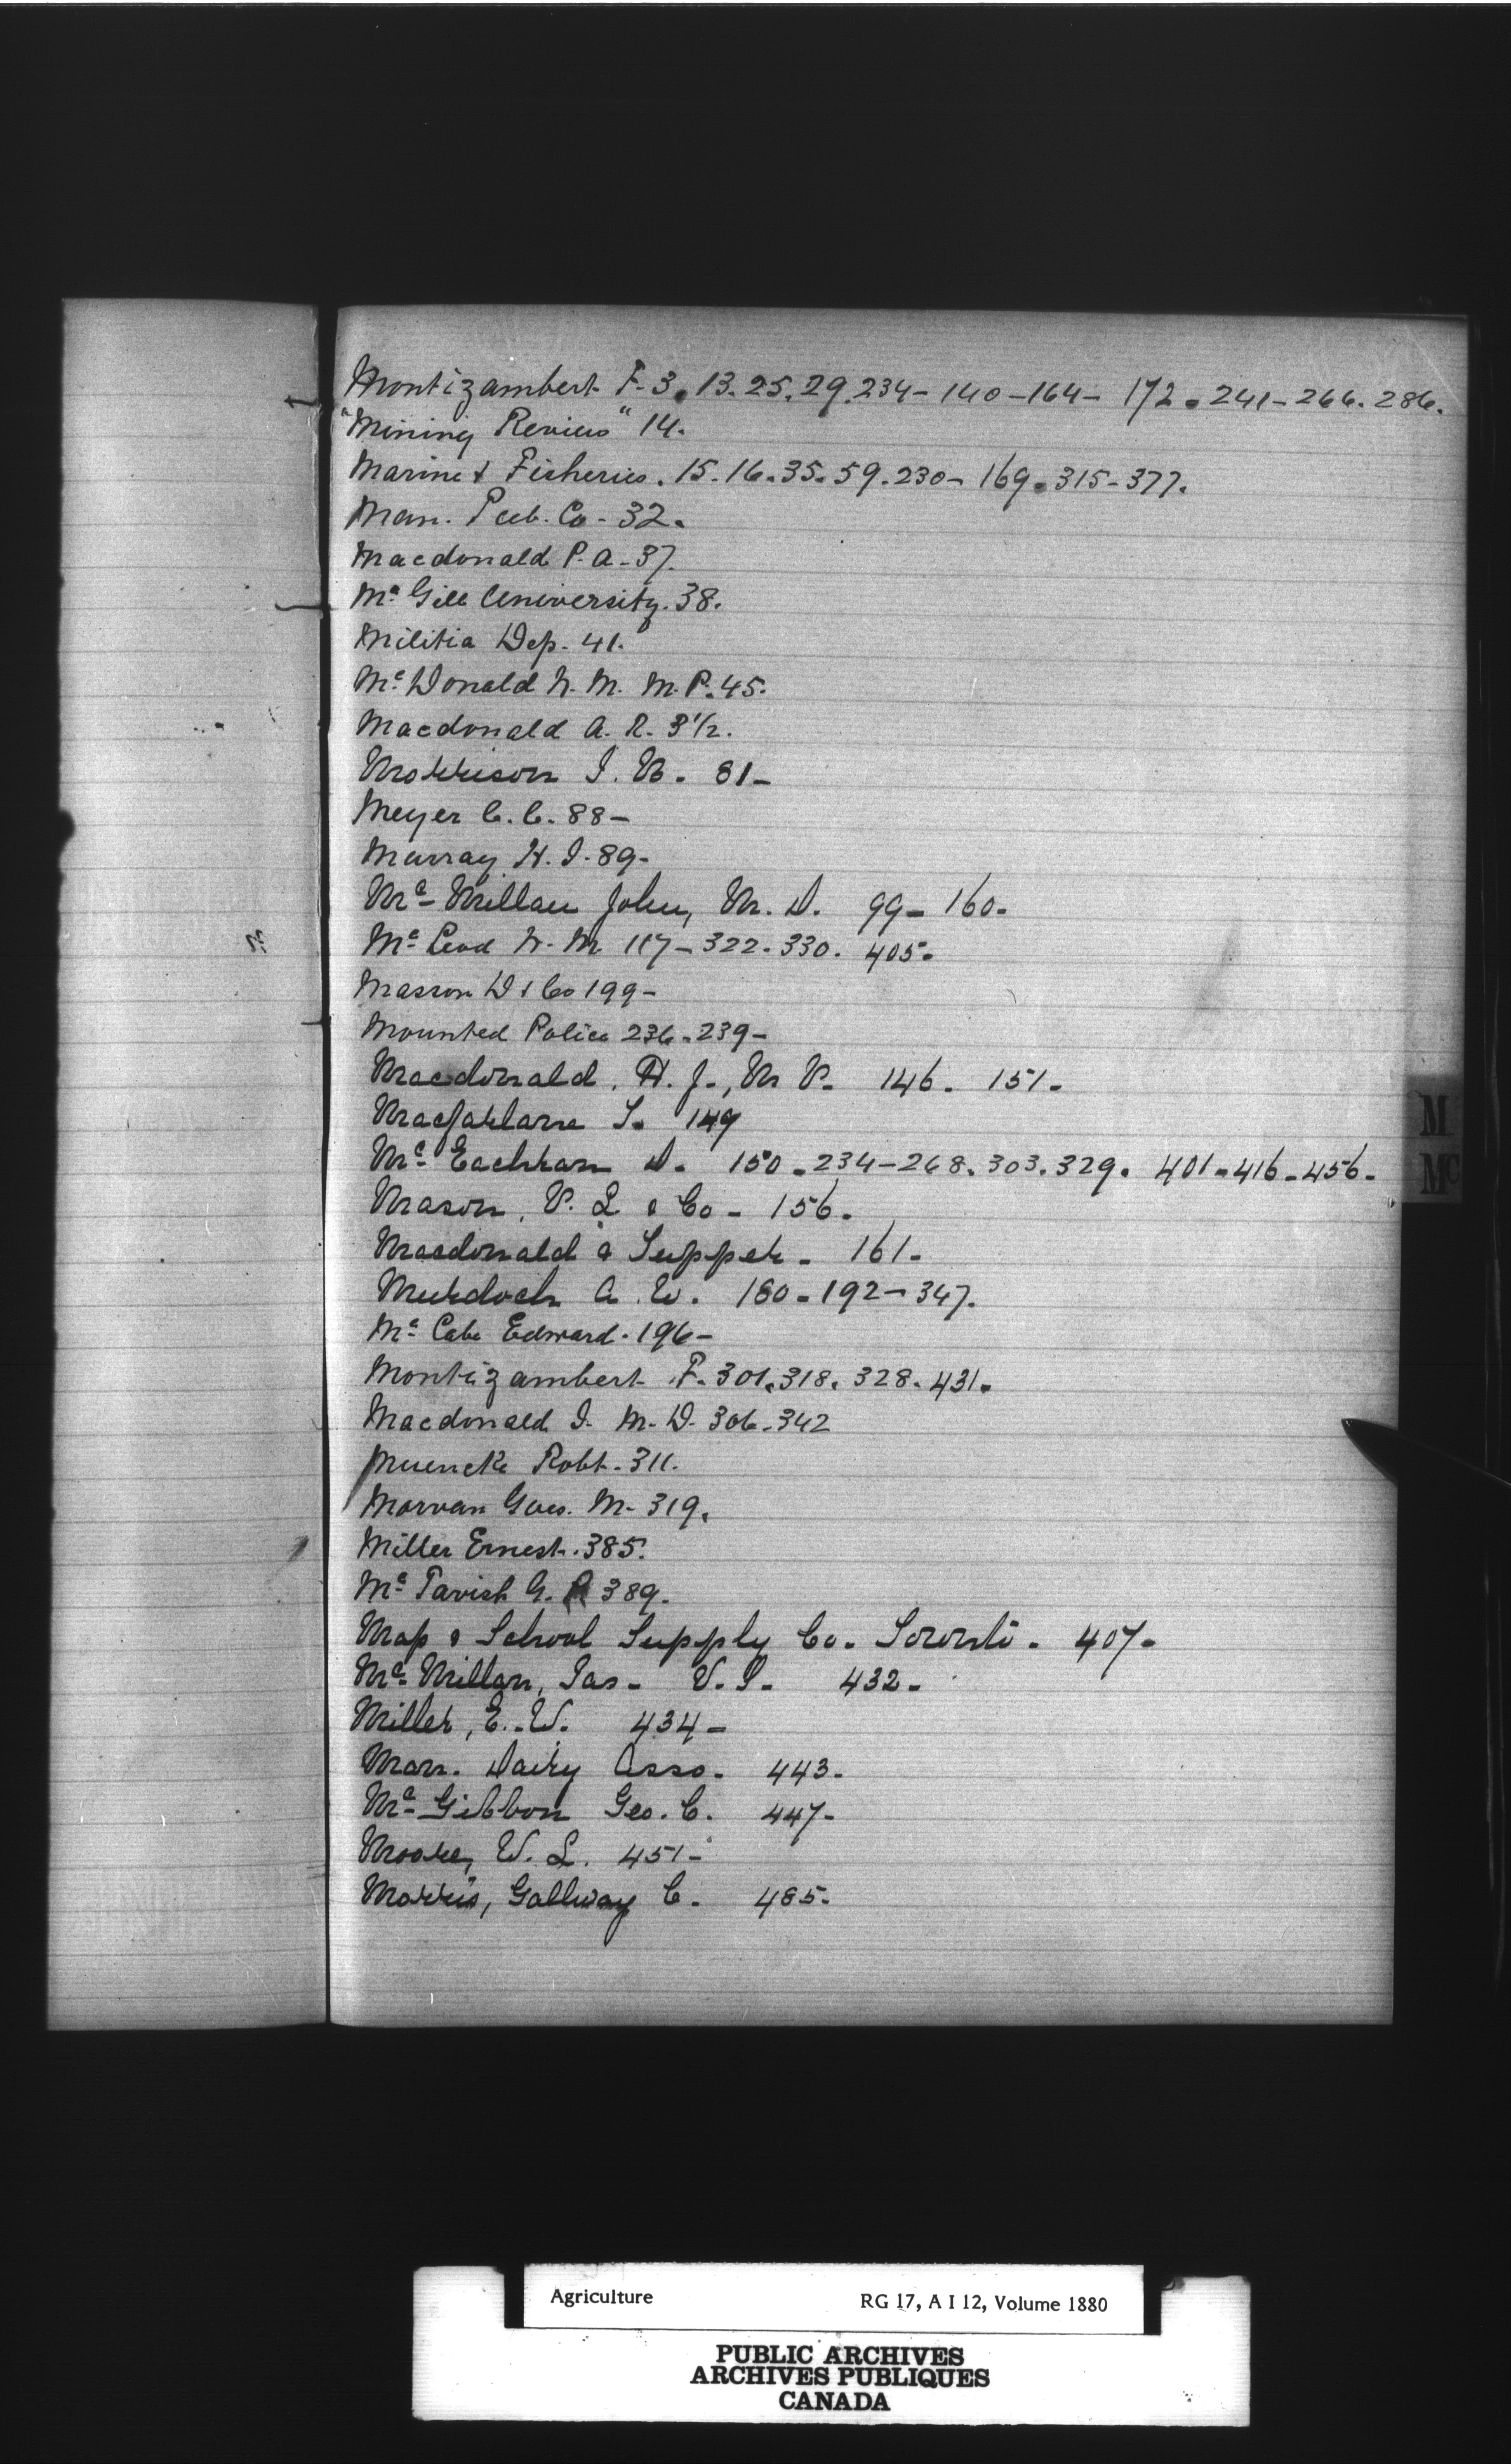 Montizambert F. 3. 13. 25. 29. 234 - 140 - 164 - 172. 241 - 266. 286.
"Mining Review" 14.
Marine & Fisheries. 15. 16. 35. 59. 230 - 169. 315 - 377.
Man. Pub. Co - 32.
Macdonald P. A. - 37.
Mc Gill University. 38.
Militia Dep. 41.
Mc Donald W. M. M. P. 45.
Macdonald A. R. 3 1/2.
Morrison J. B. 81 -
Meyer C. C. 88 -
Murray H. I. 89 -
Mc Millan John, M. D. 99 - 160.
Mc Leod W. M. 117 - 322. 330. 405.
Masson D & Co 199 -
Mounted Police 236. 239 -
Macdonald, H. J., M. P. 146. 151.
Macfarlane T. 149
Mc Eachran D. 150. 234 - 268. 303. 329. 401 - 416 - 456 -
Mason, P. L & Co - 156.
Macdonald & Tupper - 161.
Murdoch A. W. 180 - 192 - 347.
Mc Cabe Edward. 196 -
Montizambert F. 301. 318. 328. 431.
Macdonald J. M. D. 306. 342
Muencke Robt. 311.
Morvan Gves. M. 319.
Miller Ernest. 385.
Mc Tavish G. 389.
Map & School Supply Co. Toronto. 407 -
Mc Millan, Jas - V. S. 432 -
Miller, E. W. 434 -
Man. Dairy Asso. 443 -
Mc Gibbon Geo. C. 447 -
Moore, W. L. 451 -
Morris, Gallway C. 485 -
M
MC
Agriculture RG 17, A I 12, Volume 1880
PUBLIC ARCHIVES
ARCHIVES PUBLIQUES
CANADA